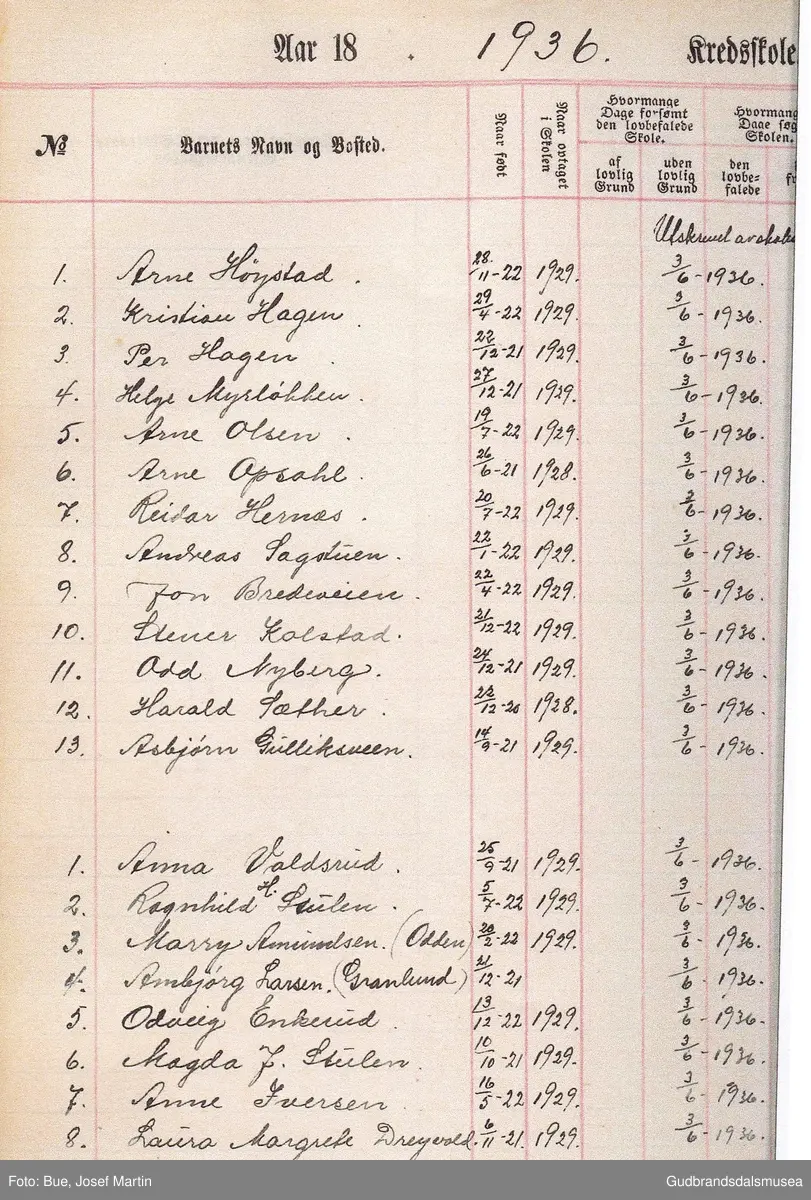 Aar 18 . 1936. Kredsskole
No
Barnets Navn og Bosted.
Naar født
Naar optaget i Skolen
Hvormange Dage forsømt den lovbefalede Skole.
af lovlig Grund
uden lovlig Grund
Hvormang Dage søg Skolen.
den lovbe-falede
Utskrevet av
1. Arne Höystad . 28/11-22 1929. 3/6-1936.
2. Kristian Hagen . 29/4-22 1929. 3/6-1936.
3. Per Hagen . 22/12-21 1929. 3/6-1936.
4. Helge Myrløkken . 27/12-21 1929. 3/6-1936.
5. Arne Olsen . 19/7-22 1929. 3/6-1936.
6. Arne Opsahl . 26/6-21 1928. 3/6-1936.
7. Reidar Hernæs . 20/7-22 1929. 3/6-1936.
8. Andreas Sagstuen . 22/1-22 1929. 3/6-1936.
9. Jon Bredeveien . 22/4-22 1929. 3/6-1936.
10. Stener Kolstad . 21/12-22 1929. 3/6-1936.
11. Odd Nyberg . 24/12-21 1929. 3/6-1936.
12. Harald Sæther . 22/12-20 1928. 3/6-1936.
13. Asbjørn Gulliksveen . 14/9-21 1929. 3/6-1936.
1. Anna Valdsrud . 25/9-21 1929. 3/6-1936.
2. Ragnhild H. Stulen . 5/7-22 1929. 3/6-1936.
3. Marry Amundsen. (Odden) 20/2-22 1929. 3/6-1936.
4. Ambjørg Larsen. (Granlund) 21/12-21 3/6-1936.
5. Odveig Enkerud . 13/12-22 1929. 3/6-1936.
6. Magda J. Stulen . 10/10-21 1929. 3/6-1936.
7. Anne Iversen . 16/5-22 1929. 3/6-1936.
8. Laura Margrete Dreyvold. 6/11-21. 1929. 3/6-1936.
Foto: Bue, Josef Martin
Gudbrandsdalsmusea